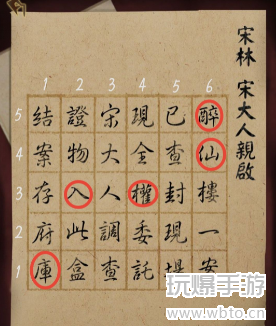 宋林 宋大人親啟
1 2 3 4 5 6
5 4 3 2 1
醉仙樓一案
已查封現場
現全權委託
宋大人調查
證物入此盒
結案存府庫
玩爆手游
www.wbto.cn